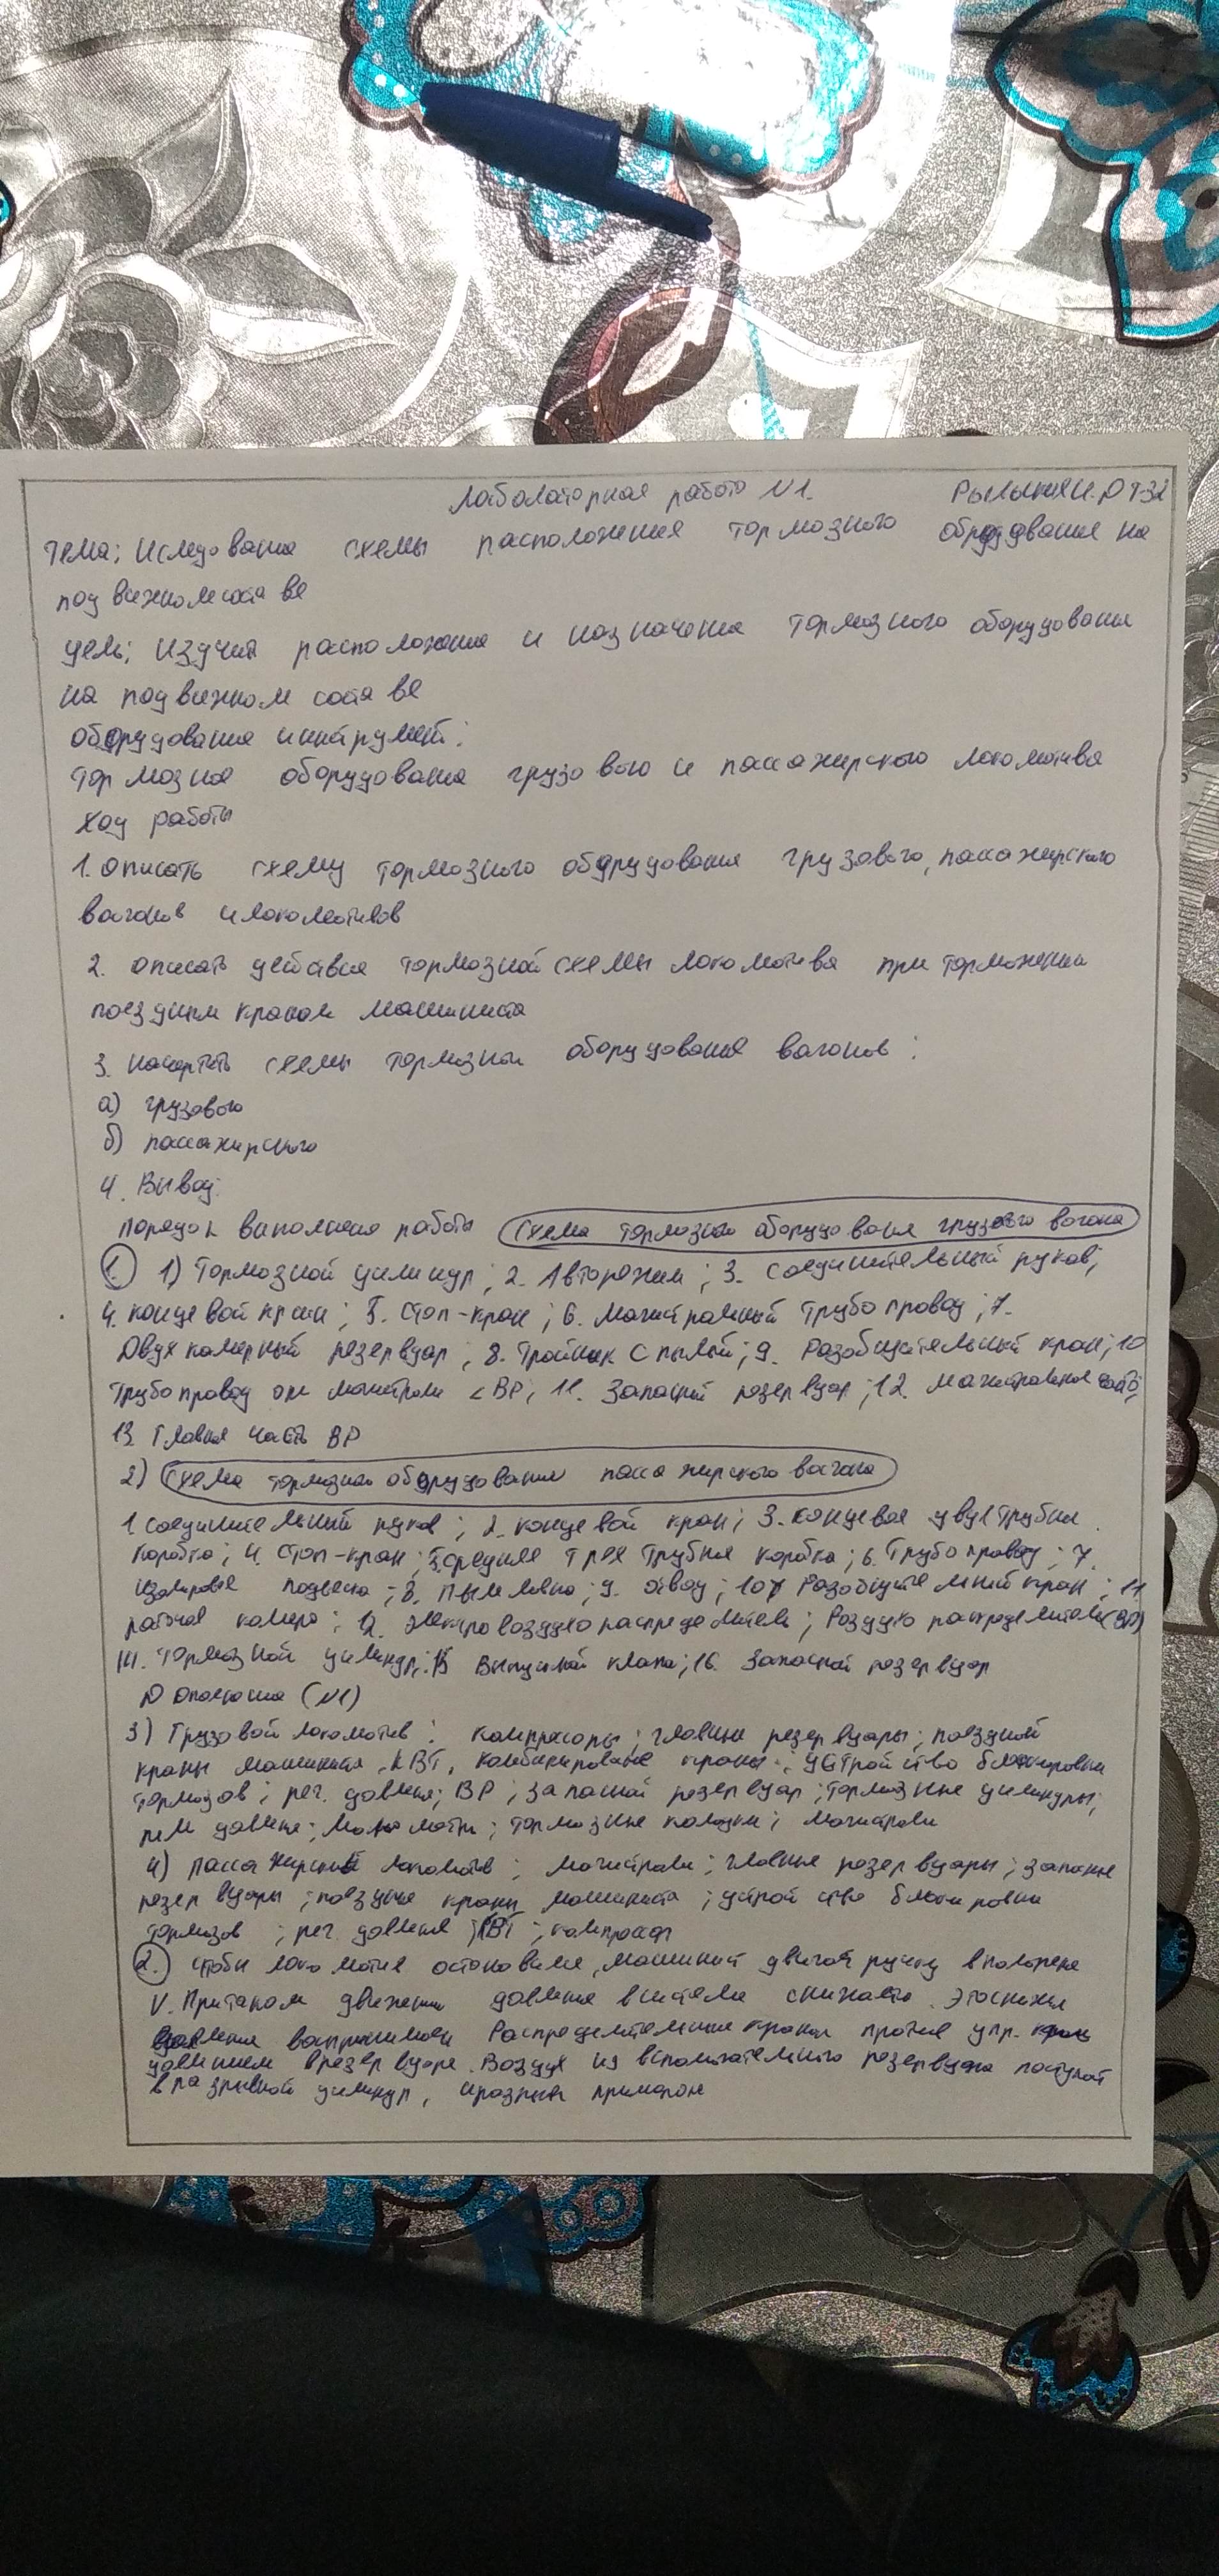 Лаболаторная работа N1.
Тема: Иследования схемы расположения тормозного оборудования на
подвижном составе
цель: изучит расположения и назначения тормозного оборудования
на подвижном составе
оборудования и инструмент:
тормозная оборудования грузового и пассажирского локомотива
Ход работы
1. Описать схему тормозного оборудования грузового, пассажирского
вагонов и локомотивов
2. Описать действия тормозной схемы локомотива при торможении
поездным краном машиниста
3. Начертить схемы тормозной оборудования вагонов:
а) грузового
б) пассажирского
4. Вывод.
Порядок выполнения работы Схема тормозного оборудования грузового вагона
1. 1) Тормозной цилиндр; 2. Авторежим; 3. Соединительный рукав;
4. концевой кран; 5. Стоп-кран; 6. Магистральный трубопровод; 7.
Двухкамерный резервуар; 8. Тройник с пылью; 9. Разобщительный кран; 10
Трубопровод от магистрали к ВР; 11. Запасный резервуар; 12. Магистральная часть;
13. Главная часть ВР
2) Схема тормозного оборудования пассажирского вагона
1. Соединительный рукав; 2. концевой кран; 3. концевая двухтрубная
коробка; 4. Стоп-кран; 5. средняя трех трубная коробка; 6. Трубопровод; 7.
подвеска; 8. Пылеловка; 9. отвод; 10 Разобщительный кран; 11
рабочая камера; 12. Электровоздухораспределитель; (ВР)
14. Тормозной цилиндр; 15 Выпускной клапан; 16. Запасной резервуар
(N1)
3) Грузовой локомотив: компрессоры; главные резервуары; поездной
краны машиниста, КВТ, комбинированые краны; устройство блокировки
тормозов; рег. давления; ВР; запасной резервуар; тормозные цилиндры;
реле давление; манометры; тормозные колодки; магистрали
4) Пассажирский локомотив; магистрали; главные резервуары; запасные
резервуары; поездные краны машиниста; устройство блокировки
тормозов; рег. давления; КВТ; компрессор
2. чтобы локомотив остановился, машинист двигает ручку в положение
V. При таком движении давления в системе снижается. Это снижен
давления Распределительные краном против упр.
давлением в резервуаре. Воздух из вспомогательного резервуара поступает
в цилиндр,